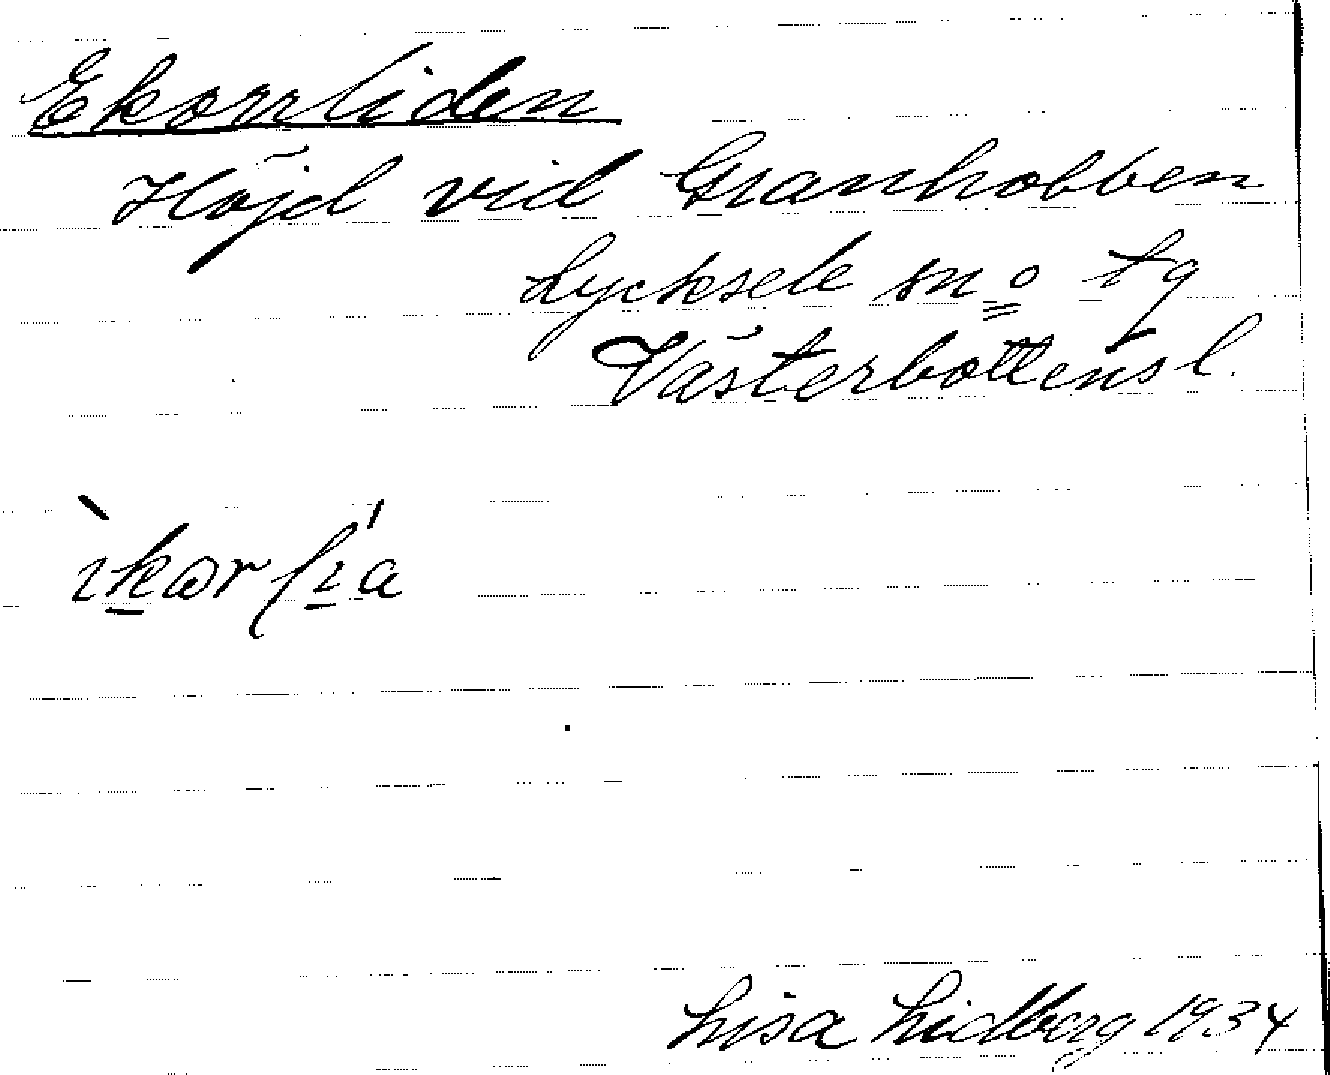 Ekorrliden
Höjd vid Granhobben
Lycksele sn o tg
Västerbottens l.
Lisa Lidberg 1934